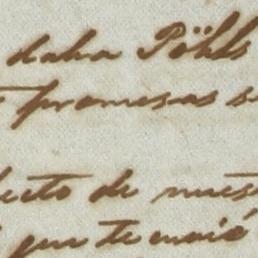 daba Pöhls
promesas s
ecto de nuest
que te envió